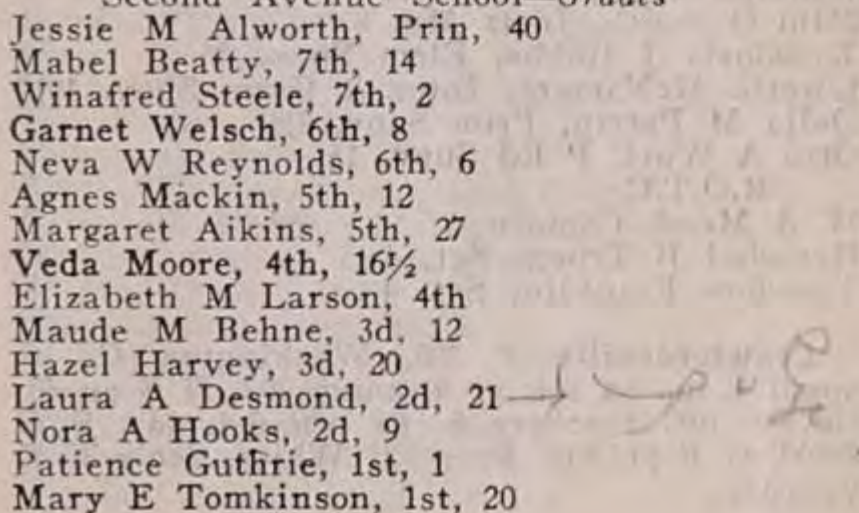 Second Avenue School—Grades
Jessie M Alworth, Prin, 40
Mabel Beatty, 7th, 14
Winafred Steele, 7th, 2
Garnet Welsch, 6th, 8
Neva W Reynolds, 6th, 6
Agnes Mackin, 5th, 12
Margaret Aikins, 5th, 27
Veda Moore, 4th, 16½
Elizabeth M Larson, 4th
Maude M Behne, 3d, 12
Hazel Harvey, 3d, 20
Laura A Desmond, 2d, 21
Nora A Hooks, 2d, 9
Patience Guthrie, 1st, 1
Mary E Tomkinson, 1st, 20